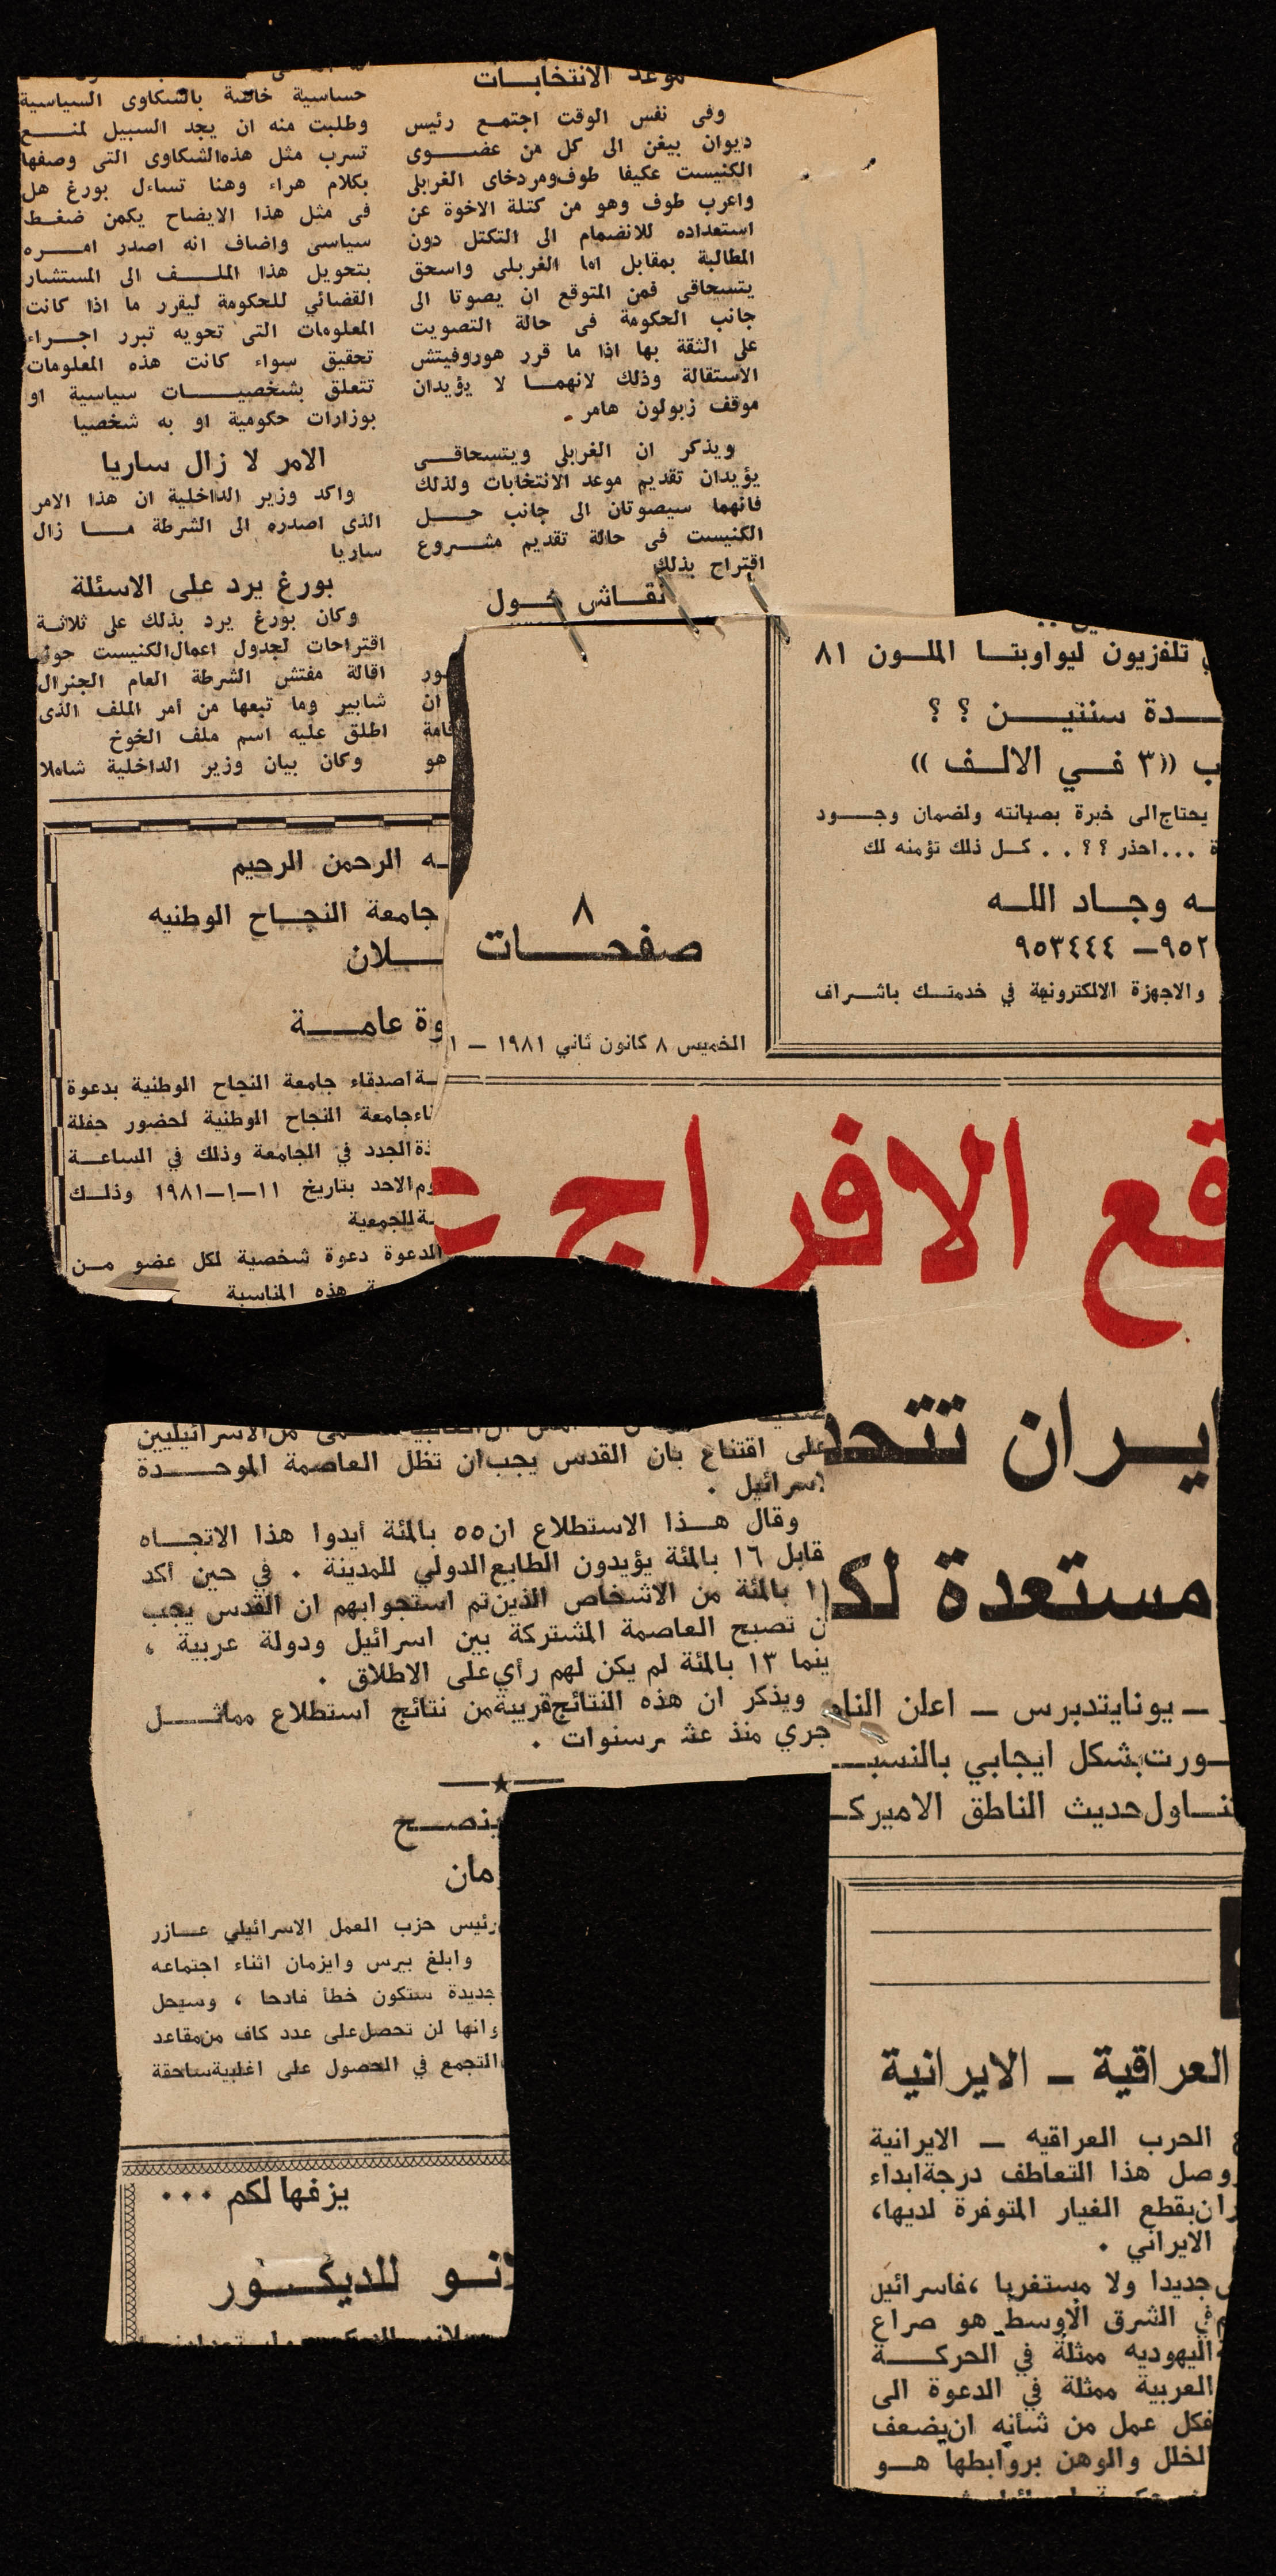 موعد الانتخابات
وفى نفس الوقت اجتمع رئيس
ديوان بيغن الى كل من عضوى
الكنيست عكيفا طوف ومردخاى الغربلى
واعرب طوف وهو من كتلة الاخوة عن
استعداده للانضمام الى التكتل دون
المطالبة بمقابل اما الغربلى واسحق
يتسحاقى فمن المتوقع ان يصوتا الى
جانب الحكومة فى حالة التصويت
على الثقة بها اذا ما قرر هوروفيتش
الاستقالة وذلك لانهما لا يؤيدان
موقف زبولون هامر .
ويذكر ان الغربلى ويتسحاقى
يؤيدان تقديم موعد الانتخابات ولذلك
فانهما سيصوتان الى جانب حل
الكنيست فى حالة تقديم مشروع
اقتراح بذلك
نقاش حول
ور
ان
امة
هو
حساسية خاصة بالشكاوى السياسية
وطلبت منه ان يجد السبيل لمنع
تسرب مثل هذه الشكاوى التى وصفها
بكلام هراء وهنا تساءل بورغ هل
فى مثل هذا الايضاح يكمن ضغط
سياسى واضاف انه اصدر امره
بتحويل هذا الملف الى المستشار
القضائي للحكومة ليقرر ما اذا كانت
المعلومات التى تحويه تبرر اجراء
تحقيق سواء كانت هذه المعلومات
تتعلق بشخصيات سياسية او
بوزارات حكومية او به شخصيا
الامر لا زال ساريا
واكد وزير الداخلية ان هذا الامر
الذى اصدره الى الشرطة ما زال
ساريا
بورغ يرد على الاسئلة
وكان بورغ يرد بذلك على ثلاثة
اقتراحات لجدول اعمال الكنيست حول
اقالة مفتش الشرطة العام الجنرال
شابير وما تبعها من أمر الملف الذى
اطلق عليه اسم ملف الخوخ
وكان بيان وزير الداخلية شاملا
تلفزيون ليواوبتا الملون ٨١
دة سنتين ؟ ؟
ب ((٣ في الالف ))
يحتاج الى خبرة بصيانته ولضمان وجود
ة ...احذر ؟ ؟ . . كل ذلك تؤمنه لك
ه وجاد الله
٩٥٢– ٩٥٣٤٤٤
والاجهزة الالكترونية في خدمتك باشراف
٨
صفحات
الخميس ٨ كانون ثاني ١٩٨١ – ١
ه الرحمن الرحيم
جامعة النجاح الوطنيه
لان
وة عامة
ة اصدقاء جامعة النجاح الوطنية بدعوة
اء جامعة النجاح الوطنية لحضور حفلة
ذة الجدد في الجامعة وذلك في الساعة
وم الاحد بتاريخ ١١–١–١٩٨١ وذلك
ة للجمعية
الدعوة دعوة شخصية لكل عضو من
ة هذه المناسبة
قع الافراج ع
ايران تتحد
مستعدة لك
– يونايتدبرس – اعلن النا
ورت بشكل ايجابي بالنسب
تناول حديث الناطق الاميرك
على اقتناع بان القدس يجب ان تظل العاصمة الموحدة
لاسرائيل .
وقال هذا الاستطلاع ان ٥٥ بالمئة أيدوا هذا الاتجاه
قابل ١٦ بالمئة يؤيدون الطابع الدولي للمدينة . في حين أكد
بالمئة من الاشخاص الذين تم استجوابهم ان القدس يجب
ن تصبح العاصمة المشتركة بين اسرائيل ودولة عربية ،
ينما ١٣ بالمئة لم يكن لهم رأي على الاطلاق .
ويذكر ان هذه النتائج قريبة من نتائج استطلاع مماثل
جري منذ عشر سنوات .
ينصح
زمان
رئيس حزب العمل الاسرائيلي عازر
وابلغ بيرس وايزمان اثناء اجتماعه
جديدة ستكون خطأ فادحا ، وسيحل
وانها لن تحصل على عدد كاف من مقاعد
التجمع في الحصول على اغلبية ساحقة
يزفها لكم ...
انو للديكور
العراقية – الايرانية
الحرب العراقيه – الايرانية
ووصل هذا التعاطف درجة ابداء
ران بقطع الغيار المتوفرة لديها،
الايراني .
جديدا ولا مستغربا ،فاسرائيل
في الشرق الاوسط هو صراع
اليهوديه ممثلة في الحركة
العربية ممثلة في الدعوة الى
فكل عمل من شأنه ان يضعف
الخلل والوهن بروابطها هو